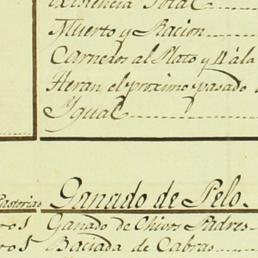 Existencia Total
Muerto y Racion
Carneros al Plato y 11 à la
Heran el proximo pasado
Ygual
Pastorias Ganado de Pelo.
ros Ganado de Chivos Padres
ros Baciada de Cabras